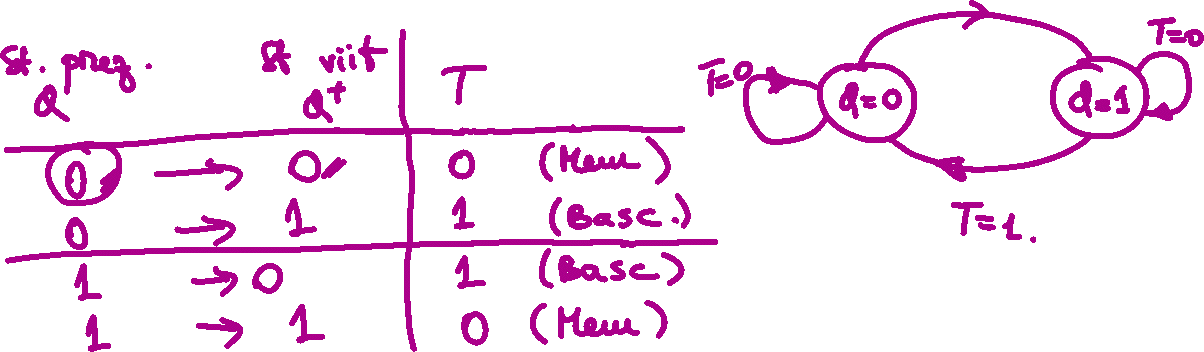 St. prez. St viit T
Q Q+
0 → 0 0 (Mem)
0 → 1 1 (Basc.)
1 → 0 1 (Basc)
1 → 1 0 (Mem)
T=0 Q=0 Q=1 T=0
T=1.